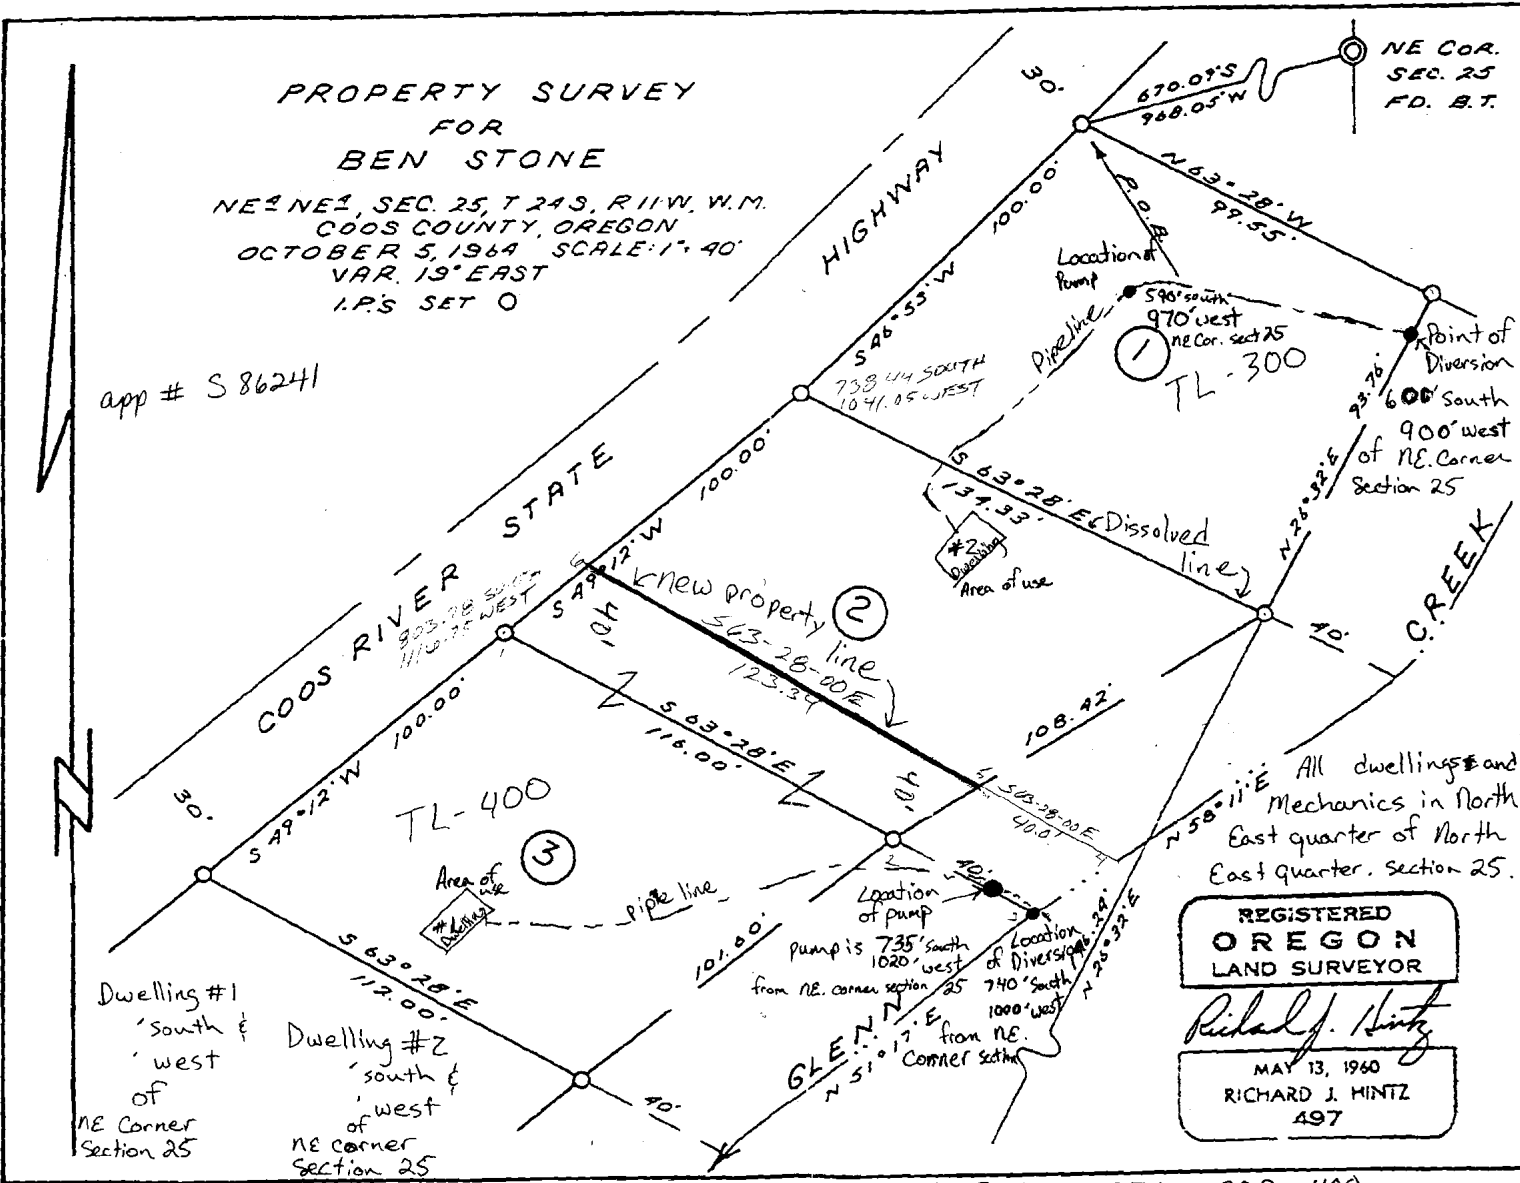 PROPERTY SURVEY
FOR
BEN STONE
NE¼ NE¼, SEC. 25, T 24 S, R 11 W, W.M.
COOS COUNTY, OREGON
OCTOBER 5, 1964 SCALE: 1"= 40'
VAR. 19° EAST
I.P.'S SET O
app # S 86241
NE COR.
SEC. 25
FD. B.T.
670.09'S
968.05'W
30.
HIGHWAY
STATE
COOS RIVER
30.
100.00'
S 46° 53' W
P.O.B.
N 63° 28' W
99.55'
Location of
Pump
590' south
970' west
NE Cor. sect 25
Pipeline
1
TL-300
Point of
Diversion
600' South
900' west
of N.E. Corner
Section 25
93.76'
N 26° 32' E
738.44 SOUTH
1041.05 WEST
100.00'
S 49° 12' W
S 63° 28' E
134.33'
Dissolved
line
#2
Dwelling
Area of use
2
new property
line
S63-28-00E
123.34
6
803.78 SOUTH
WEST
40'
1
Z
S 63° 28' E
116.00'
Z
40'
108.42
40'
CREEK
5
S63-28-00E
40.0'
4
N 58° 11' E
All dwellings and
Mechanics in North
East quarter of North
East quarter. Section 25.
100.00'
S 49° 12' W
TL-400
3
Area of
use
#1
Dwelling
pipe line
2
40'
Location
of pump
pump is 735' south
1020' west
from NE. corner section 25
Location
of Diversion
740' South
1000' west
from N.E.
Corner section
N 26° 32' E
101.60'
S 63° 28' E
112.00'
40'
GLENN
N 51° 17' E
Dwelling #1
' south &
' west
of
NE Corner
Section 25
Dwelling #2
' south &
' west
of
NE corner
Section 25
REGISTERED
OREGON
LAND SURVEYOR
Richard J. Hintz
MAY 13, 1960
RICHARD J. HINTZ
497